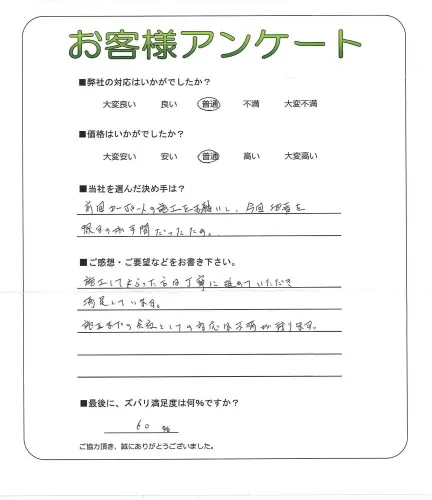 お客様アンケート
■弊社の対応はいかがでしたか?
大変良い 良い 普通 不満 大変不満
■価格はいかがでしたか?
大変安い 安い 普通 高い 大変高い
■当社を選んだ決め手は?
前回カーポートの施工をお願いし、今回
手間だったため。
■ご感想・ご要望などをお書き下さい。
施工してもらった方は丁寧に進めていただき
満足しています。
施工までの会社としての対応は不満が残ります。
■最後に、ズバリ満足度は何%ですか?
60 %
ご協力頂き、誠にありがとうございました。